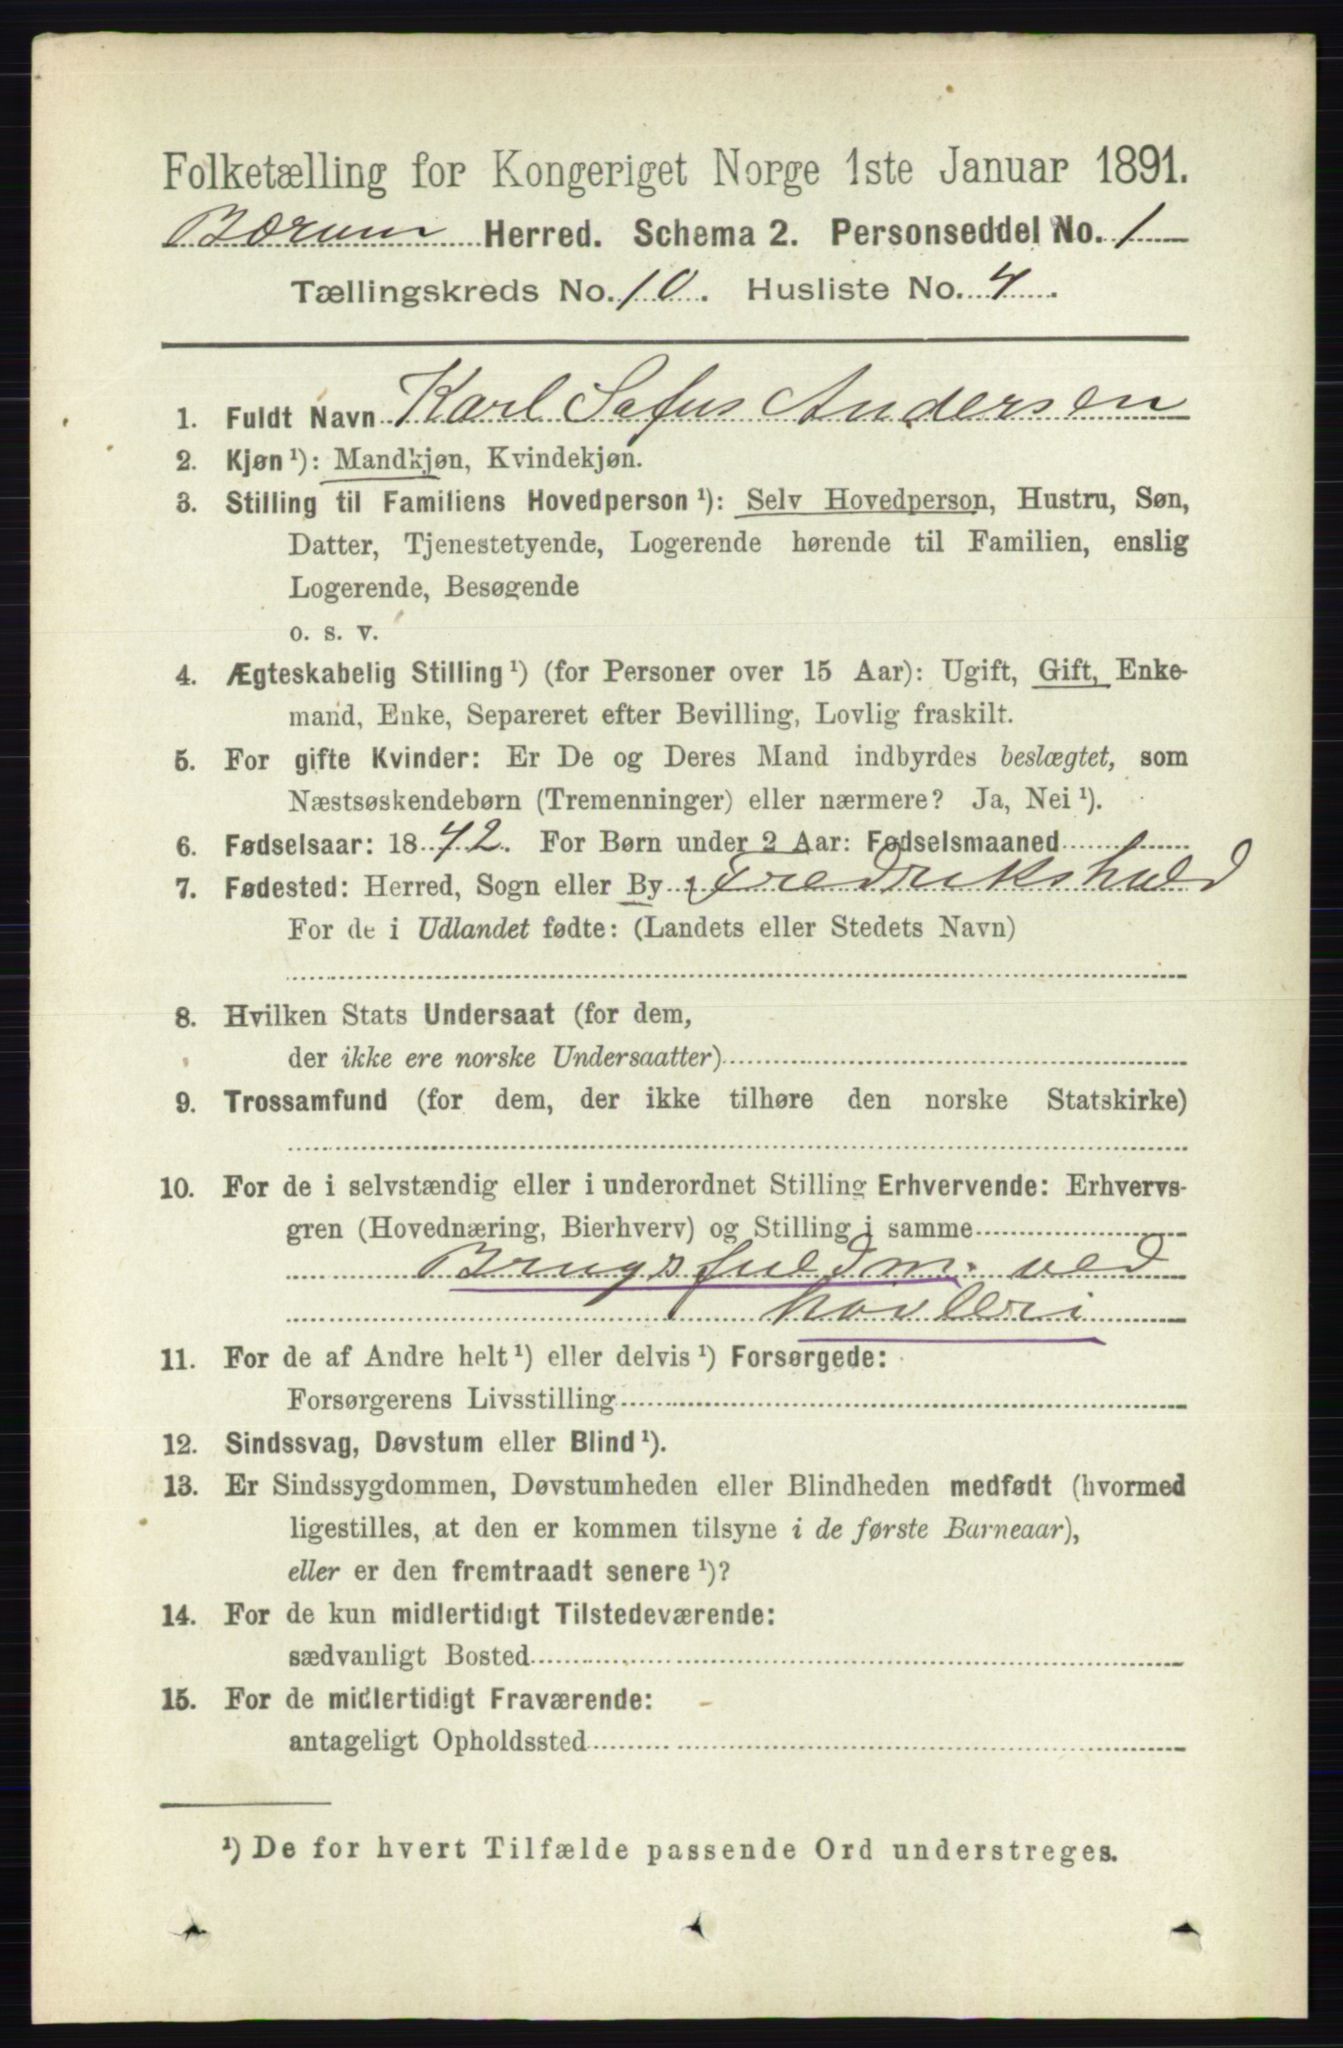 Folketælling for Kongeriget Norge 1ste Januar 1891.
Bærum Herred. Schema 2. Personseddel No. 1
Tællingskreds No. 10. Husliste No. 4.
1. Fuldt Navn Karl Sofus Andersen
2. Kjøn ¹): Mandkjøn, Kvindekjøn.
3. Stilling til Familiens Hovedperson ¹): Selv Hovedperson, Hustru, Søn,
Datter, Tjenestetyende, Logerende hørende til Familien, enslig
Logerende, Besøgende
o. s. v.
4. Ægteskabelig Stilling ¹) (for Personer over 15 Aar): Ugift, Gift, Enke-
mand, Enke, Separeret efter Bevilling, Lovlig fraskilt.
5. For gifte Kvinder: Er De og Deres Mand indbyrdes beslægtet, som
Næstsøskendebørn (Tremenninger) eller nærmere? Ja, Nei ¹).
6. Fødselsaar: 1842. For Børn under 2 Aar: Fødselsmaaned
7. Fødested: Herred, Sogn eller By Fredrikshald
For de i Udlandet fødte: (Landets eller Stedets Navn)
8. Hvilken Stats Undersaat (for dem,
der ikke ere norske Undersaatter)
9. Trossamfund (for dem, der ikke tilhøre den norske Statskirke)
10. For de i selvstændig eller i underordnet Stilling Erhvervende: Erhvervs-
gren (Hovednæring, Bierhverv) og Stilling i samme
Brugsfuldm. ved
høvleri
11. For de af Andre helt ¹) eller delvis ¹) Forsørgede:
Forsørgerens Livsstilling
12. Sindssvag, Døvstum eller Blind ¹).
13. Er Sindssygdommen, Døvstumheden eller Blindheden medfødt (hvormed
ligestilles, at den er kommen tilsyne i de første Barneaar),
eller er den fremtraadt senere ¹)?
14. For de kun midlertidigt Tilstedeværende:
sædvanligt Bosted
15. For de midlertidigt Fraværende:
antageligt Opholdssted
¹) De for hvert Tilfælde passende Ord understreges.